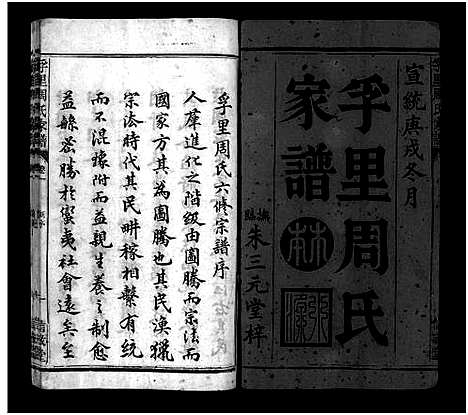 宣統庚戌冬月
孚里周氏
家譜
朱三元堂梓
孚里周氏六修宗譜序
人羣進化之階級由圖騰而宗法而
國家方其為圖騰也其民漁獵
宗法時代其民耕稼相繫有統
而不混豫附而益親生養之制愈
益繇密勝於蠻夷社會遠矣至